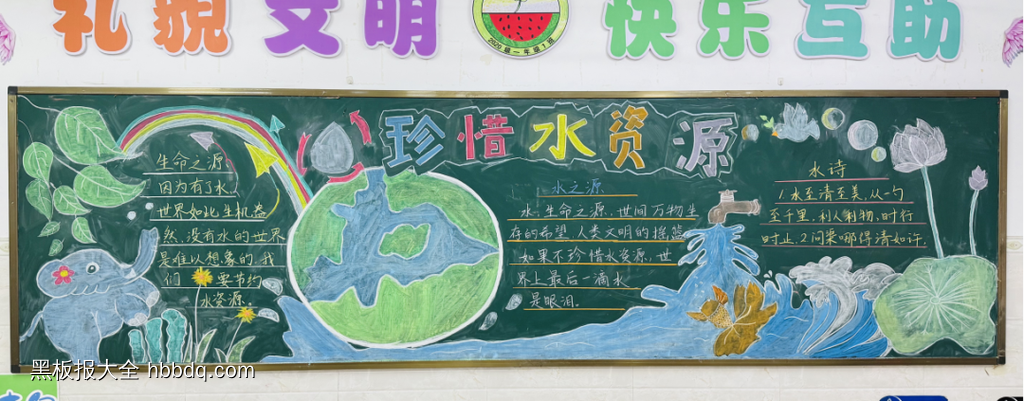 礼貌 文明 快乐 互助
2020级一年级1班
珍惜水资源
生命之源
因为有了水，
世界如此生机盎
然，没有水的世界
是难以想象的，我
们 要节约
水资源。
水之源
水，生命之源，世间万物生
存的希望，人类文明的摇篮
如果不珍惜水资源，世
界上最后一滴水
是眼泪。
水诗
1水至清至美，从一勺
至千里，利人利物，时行
时止，2问渠哪得清如许，
黑板报大全 hbbdq.com